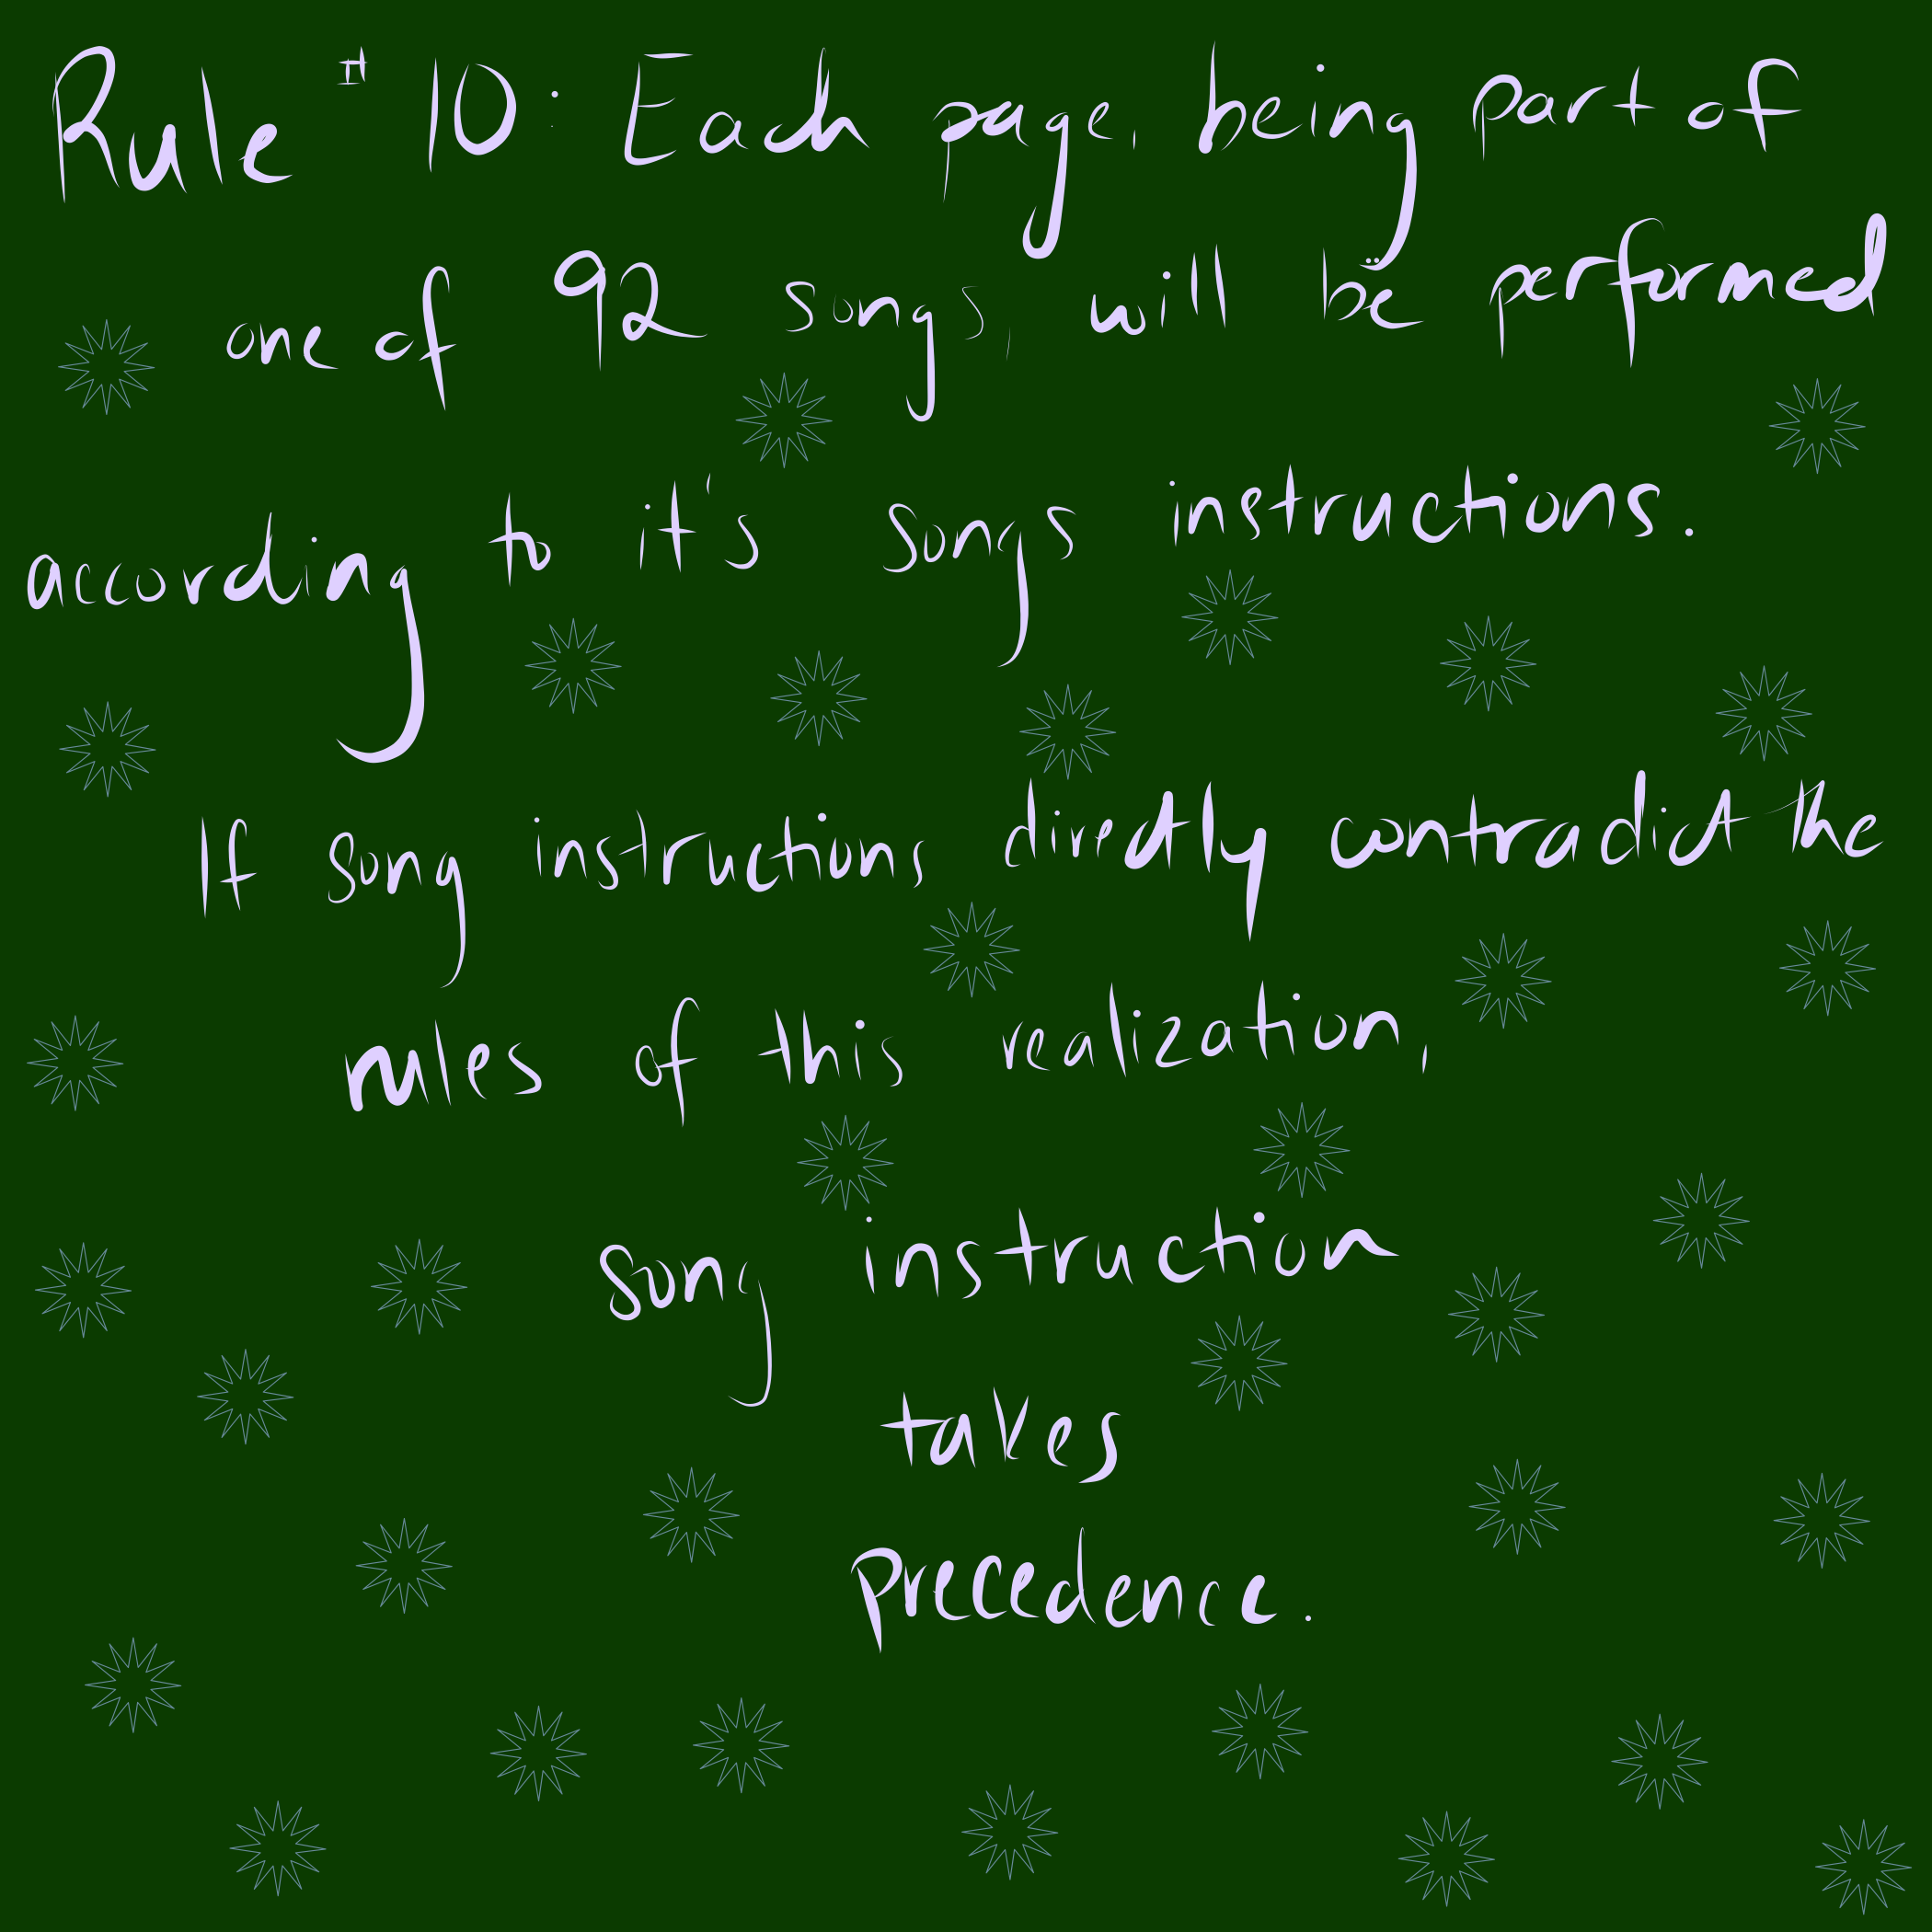 Rule #10: Each page, being part of
one of 92 songs, will be performed
according to it's songs instructions.
If song instructions directly contradict the
rules of this realization,
song instruction
takes
precedence.